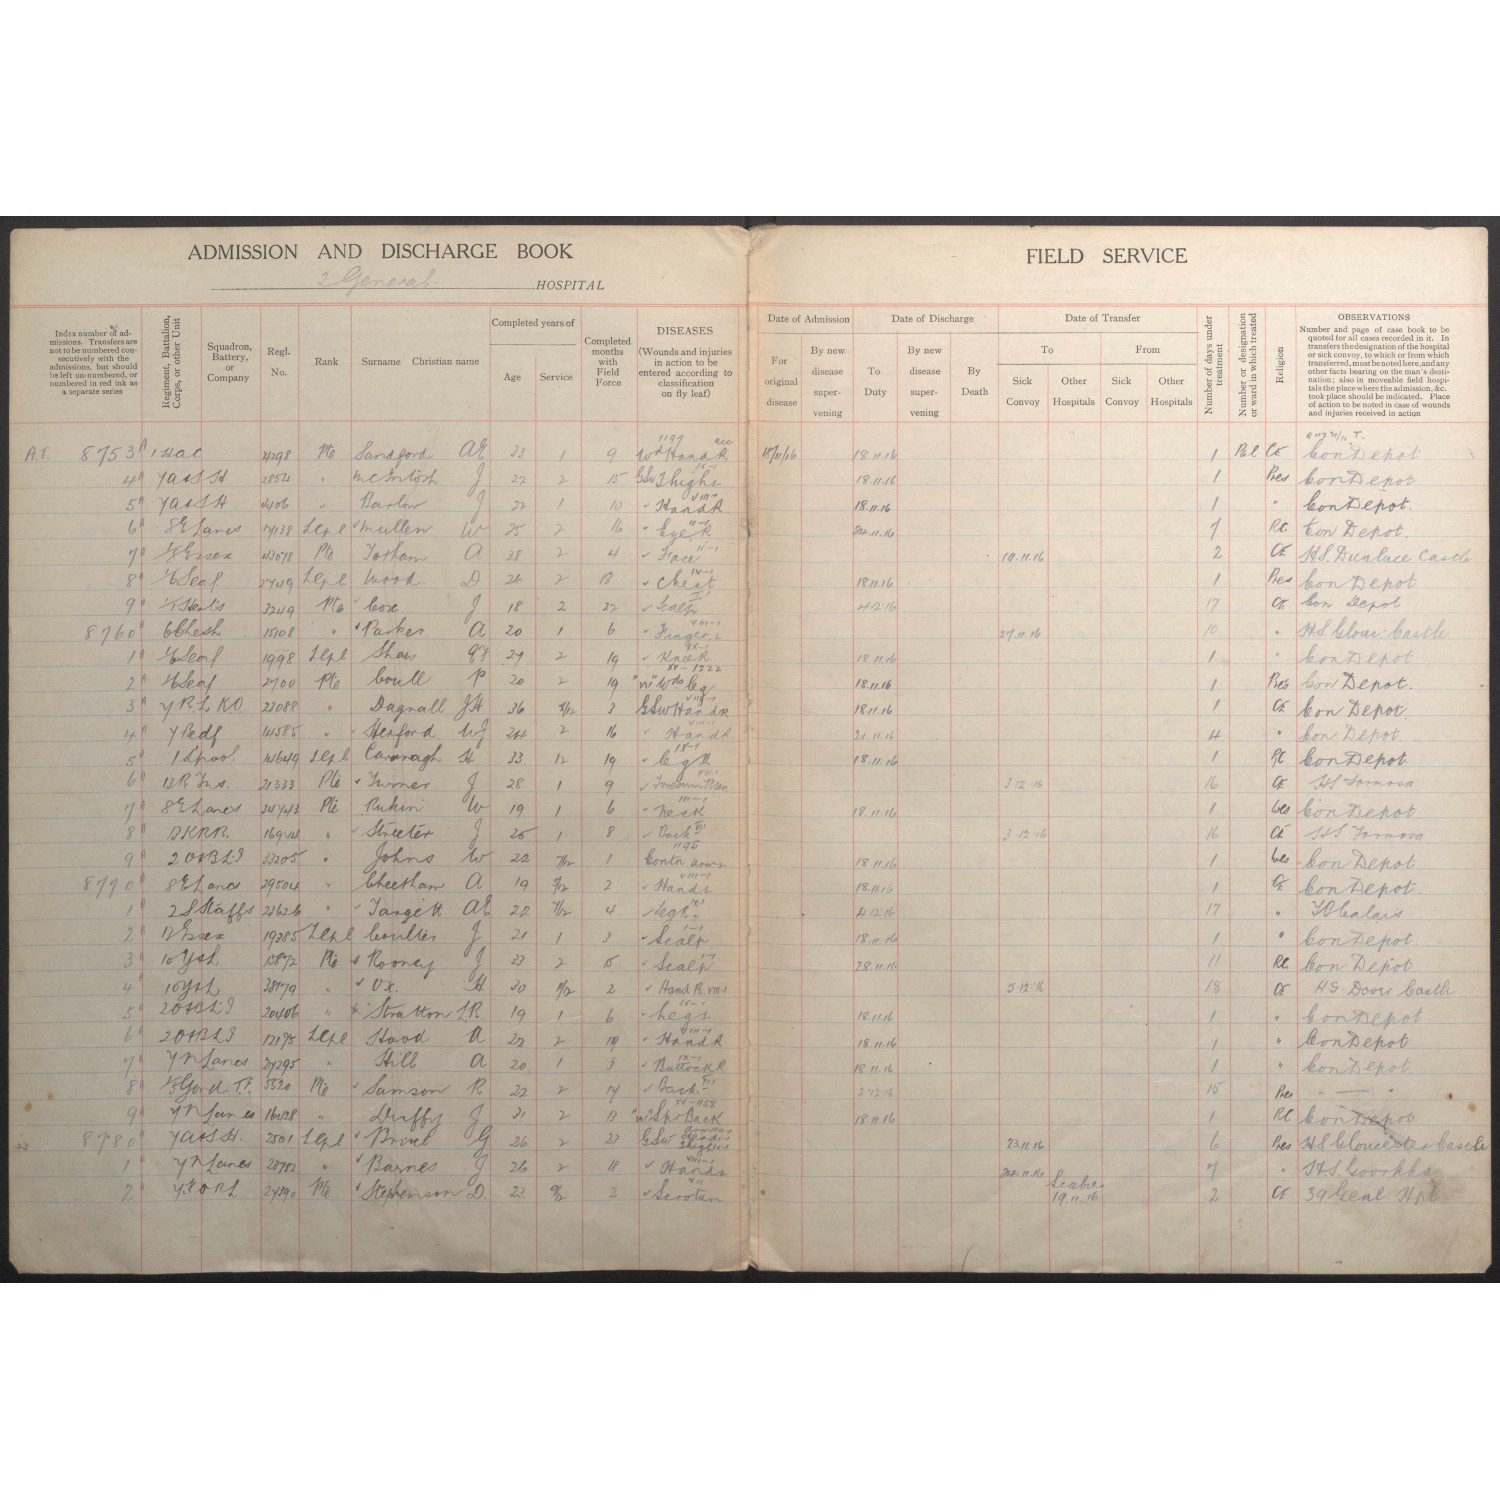 ADMISSION AND DISCHARGE BOOK
2 General HOSPITAL
FIELD SERVICE
Index number of admissions. Transfers are not to be numbered consecutively with the admissions, but should be left un-numbered, or numbered in red ink as a separate series
Regiment, Battalion, Corps, or other Unit
Squadron, Battery, or Company
Regl. No.
Rank
Surname Christian name
Completed years of
Age Service
Completed months with Field Force
DISEASES
(Wounds and injuries in action to be entered according to classification on fly leaf)
Date of Admission
For original disease
By new disease supervening
Date of Discharge
To Duty
By new disease supervening
By Death
Date of Transfer
To From
Sick Convoy
Other Hospitals
Sick Convoy
Other Hospitals
Number of days under treatment
Number or designation or ward in which treated
Religion
OBSERVATIONS
Number and page of case book to be quoted for all cases recorded in it. In transfers the designation of the hospital or sick convoy, to which or from which transferred, must be noted here, and any other facts bearing on the man's destination; also in moveable field hospitals the place where the admission, &c. took place should be indicated. Place of action to be noted in case of wounds and injuries received in action
A.T. 8753 1 HAC 4298 Pte Sandford AE 23 1 9 Wd Hand R 15/11/16 18.11.16 1 Pal CE Con Depot
4 7 A&SH 2854 " McIntosh J 22 2 15 GSW Thighs 18.11.16 1 Pres Con Depot
5 7 A&SH " Barlow J 22 1 10 " Hand R 18.11.16 1 " Con Depot.
6 8 E Lancs 17138 LCpl Mullen W 25 2 16 " Eye R 24.11.16 7 RC Con Depot.
7 Essex 43078 Pte Totham A 28 2 4 " Face 19.11.16 2 CE H.S. Dunluce Castle
8 1/6 Seaf LCpl Wood D 24 2 18 " Chest 18.11.16 1 Pres Con Depot
9 1/1 Herts 3249 Pte Cox J 18 2 22 " Scalp 4.12.16 17 CE Con Depot
8760 6 Chesh 15108 " Parker A 20 1 6 " Fingers 27.11.16 10 " H.S. Glouc. Castle
1 1/6 Seaf 1998 LCpl Shaw 29 2 19 " Knee R 18.11.16 1 " Con Depot
2 1/6 Seaf 2700 Pte Coull P 20 2 19 Leg 18.11.16 1 Pres Con Depot.
3 7 R.L KO 23088 " Dagnall JH 36 3 GSW Hand R 18.11.16 1 CE Con Depot.
4 7 Bedf 14585 " Hexford WJ 24 2 16 " Hand R 21.11.16 4 " Con Depot.
5 1 Lpool LCpl Cavanagh H 33 12 19 " Leg R 18.11.16 1 RC Con Depot.
6 13 R. Fus. 21333 Pte Turner J 28 1 9 " Forearm 3.12.16 16 CE HS Formosa
7 8 E Lancs 34743 Pte W 19 1 6 " Neck 18.11.16 1 Wes Con Depot
8 13 KRR. " Streeter J 25 1 8 " Back 3.12.16 16 CE H.S Formosa
9 2 O&BLI 23205 " Johns W 22 7/12 1 Contn 18.11.16 1 Wes Con Depot
8770 8 E Lancs 29504 " Cheetham A 19 2 " Hands 18.11.16 1 CE Con Depot.
1 2 S Staffs 23626 " Targett AE 22 4 " Legs 4.12.16 17 " TO Calais
2 13 Essex 19385 LCpl Coulter J 21 1 3 " Scalp 18.11.16 1 " Con Depot.
3 10 15872 Pte Rooney J 23 2 15 " Scalp 28.11.16 11 RC Con Depot
4 10 38179 " Ox. H 30 2 " Hand R. VIII-1 5.12.16 18 CE H.S. Dover Castle
5 2 O&BLI 20406 " Stratton L.R 19 1 6 " Legs 18.11.16 1 " Con Depot
6 2 O&BLI 12195 LCpl Hood A 22 2 19 " Hand R 18.11.16 1 " Con Depot
7 7 N Lancs 27295 " Hill A 20 1 3 " Buttock R 18.11.16 1 " Con Depot.
8 Gord T.F. 5520 Pte Samson R 22 2 17 " Back 2.12.16 15 Pres "
9 7 N Lancs 16028 " Duffy J 21 2 Back 18.11.16 1 RC Con Depot
8780 7 A&S.H. 2501 LCpl G 26 2 23 GSW 23.11.16 6 Pres H.S Gloucester Castle
1 7 N Lancs 28752 " Barnes J 26 2 18 " Hands 24.11.16 7 " H.S. Goorkha
2 7 KORL Pte Stephenson D. 23 2 " Scrotum Scabies 19.11.16 2 CE 39 Genl Hpl